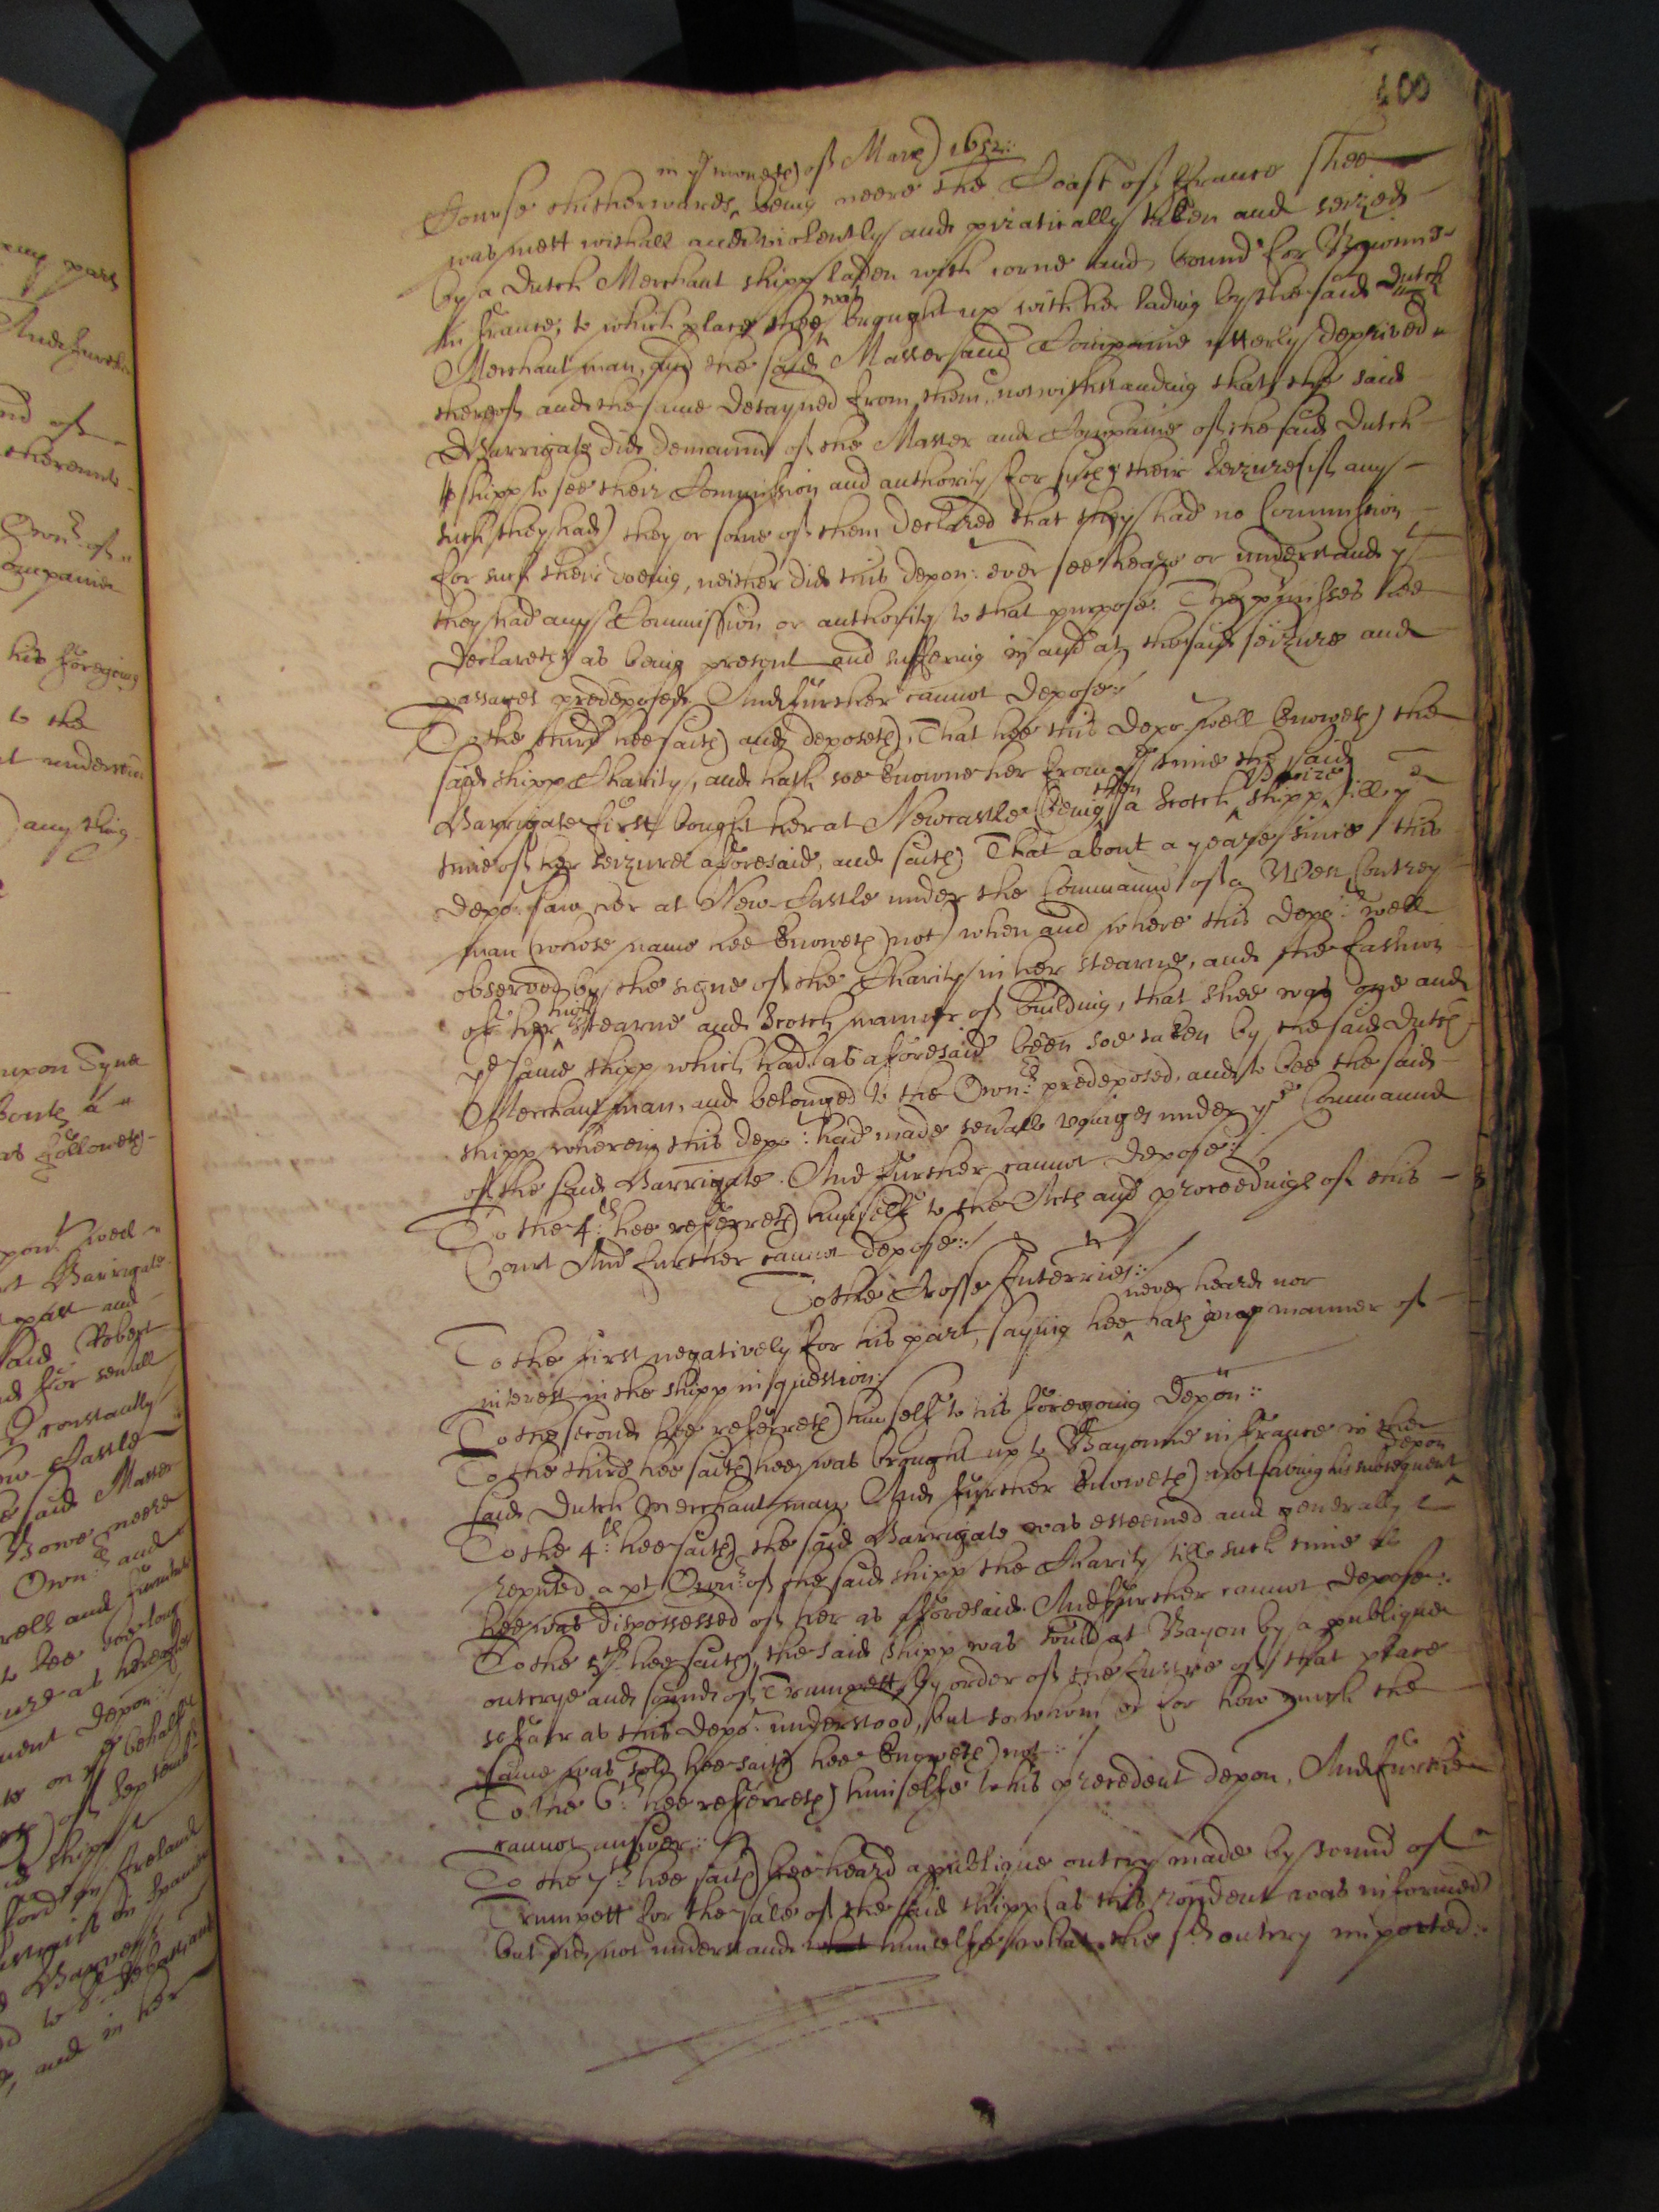 400
in ye moneth of March 1652::
Course thitherwards, being neere the Coast of ffrance shee
was mett withall and violently and piratically taken and seized
by a Dutch Merchant shipp laden with corne and bound for Bayonne
in ffrance, to which place shee was brought up with her lading by the said Dutch
Merchant man, and the said Master and Companie utterly deprived
thereof and the same detayned from them, notwithstanding that the said
Warrigate did demaund of the Master and Companie of the said Dutch
shipp to see their Commission and authority for such their seizure (if any
such they had) they or some of them declared that they had no Commission
for such their doeing, neither did this depon: ever see heare or understand yt
they had any Commission or authority to that purpose. The premisses hee
declareth as being present and suffering in and at the said seizure and
passages predeposed. And further cannot depose:/
To the third hee saith and deposeth, That hee this depot well knoweth the
said shipp Charity, and hath soe knowne her from ye time the said
Warrigate first bought her at Newcastle (being then a Scotch Prize shipp) till ye
time of her seizure aforesaid, and saith That about a yeare since this
depot saw her at New-Castle under the Command of a West Contrey
man (whose name hee knoweth not) when and where this depot: well
observed by the signe of the Charity in her stearne, and the fashion
of her high stearne and Scotch manner of building, that shee was one and
ye same shipp which had as aforesaid been soe taken by the said Dutch
Merchant man, and belonged to the Ownrs: predeposed, and to bee the said
shipp wherein this depot: had made severall voyages under ye Commaund
of the said Warrigate. And further cannot depose:/
To the 4th: hee referreth himself to the Acts and proceedings of this
Court And further cannot depose:/
To the Crosse Interries::
To the first negatively for his part, saying hee never heard nor hath any manner of
interest in the shipp in question:/
To the second hee referreth himself to his foregoing depon::
To the third hee saith hee was brought up to Bayonne in ffrance in the
said Dutch Merchant man. And further knoweth not saving his subsequent depon
To the 4th: hee saith the said Warrigate was esteemed and generally
reputed a pt Ownr: of the said shipp the Charity till such time
hee was dispossessed of her as afforesaid. And further cannot depose:
To the 5th: hee saith, the said shipp was sould at Bayon by a publique
outcrye and sound of Trumpett, by order of the Justice of that place
so farr as this depot: understood, but to whom or for how much the
same was sold hee saith hee knoweth not:/
To the 6th: hee referreth himselfe to his precedent depon, And further
cannot answer::
To the 7th: hee saith hee heard a publique outcry made by sound of
Trumpett for the sale of the said shipp (as this rondent was informed)
but did not understand himselfe what the sd outcry imported: